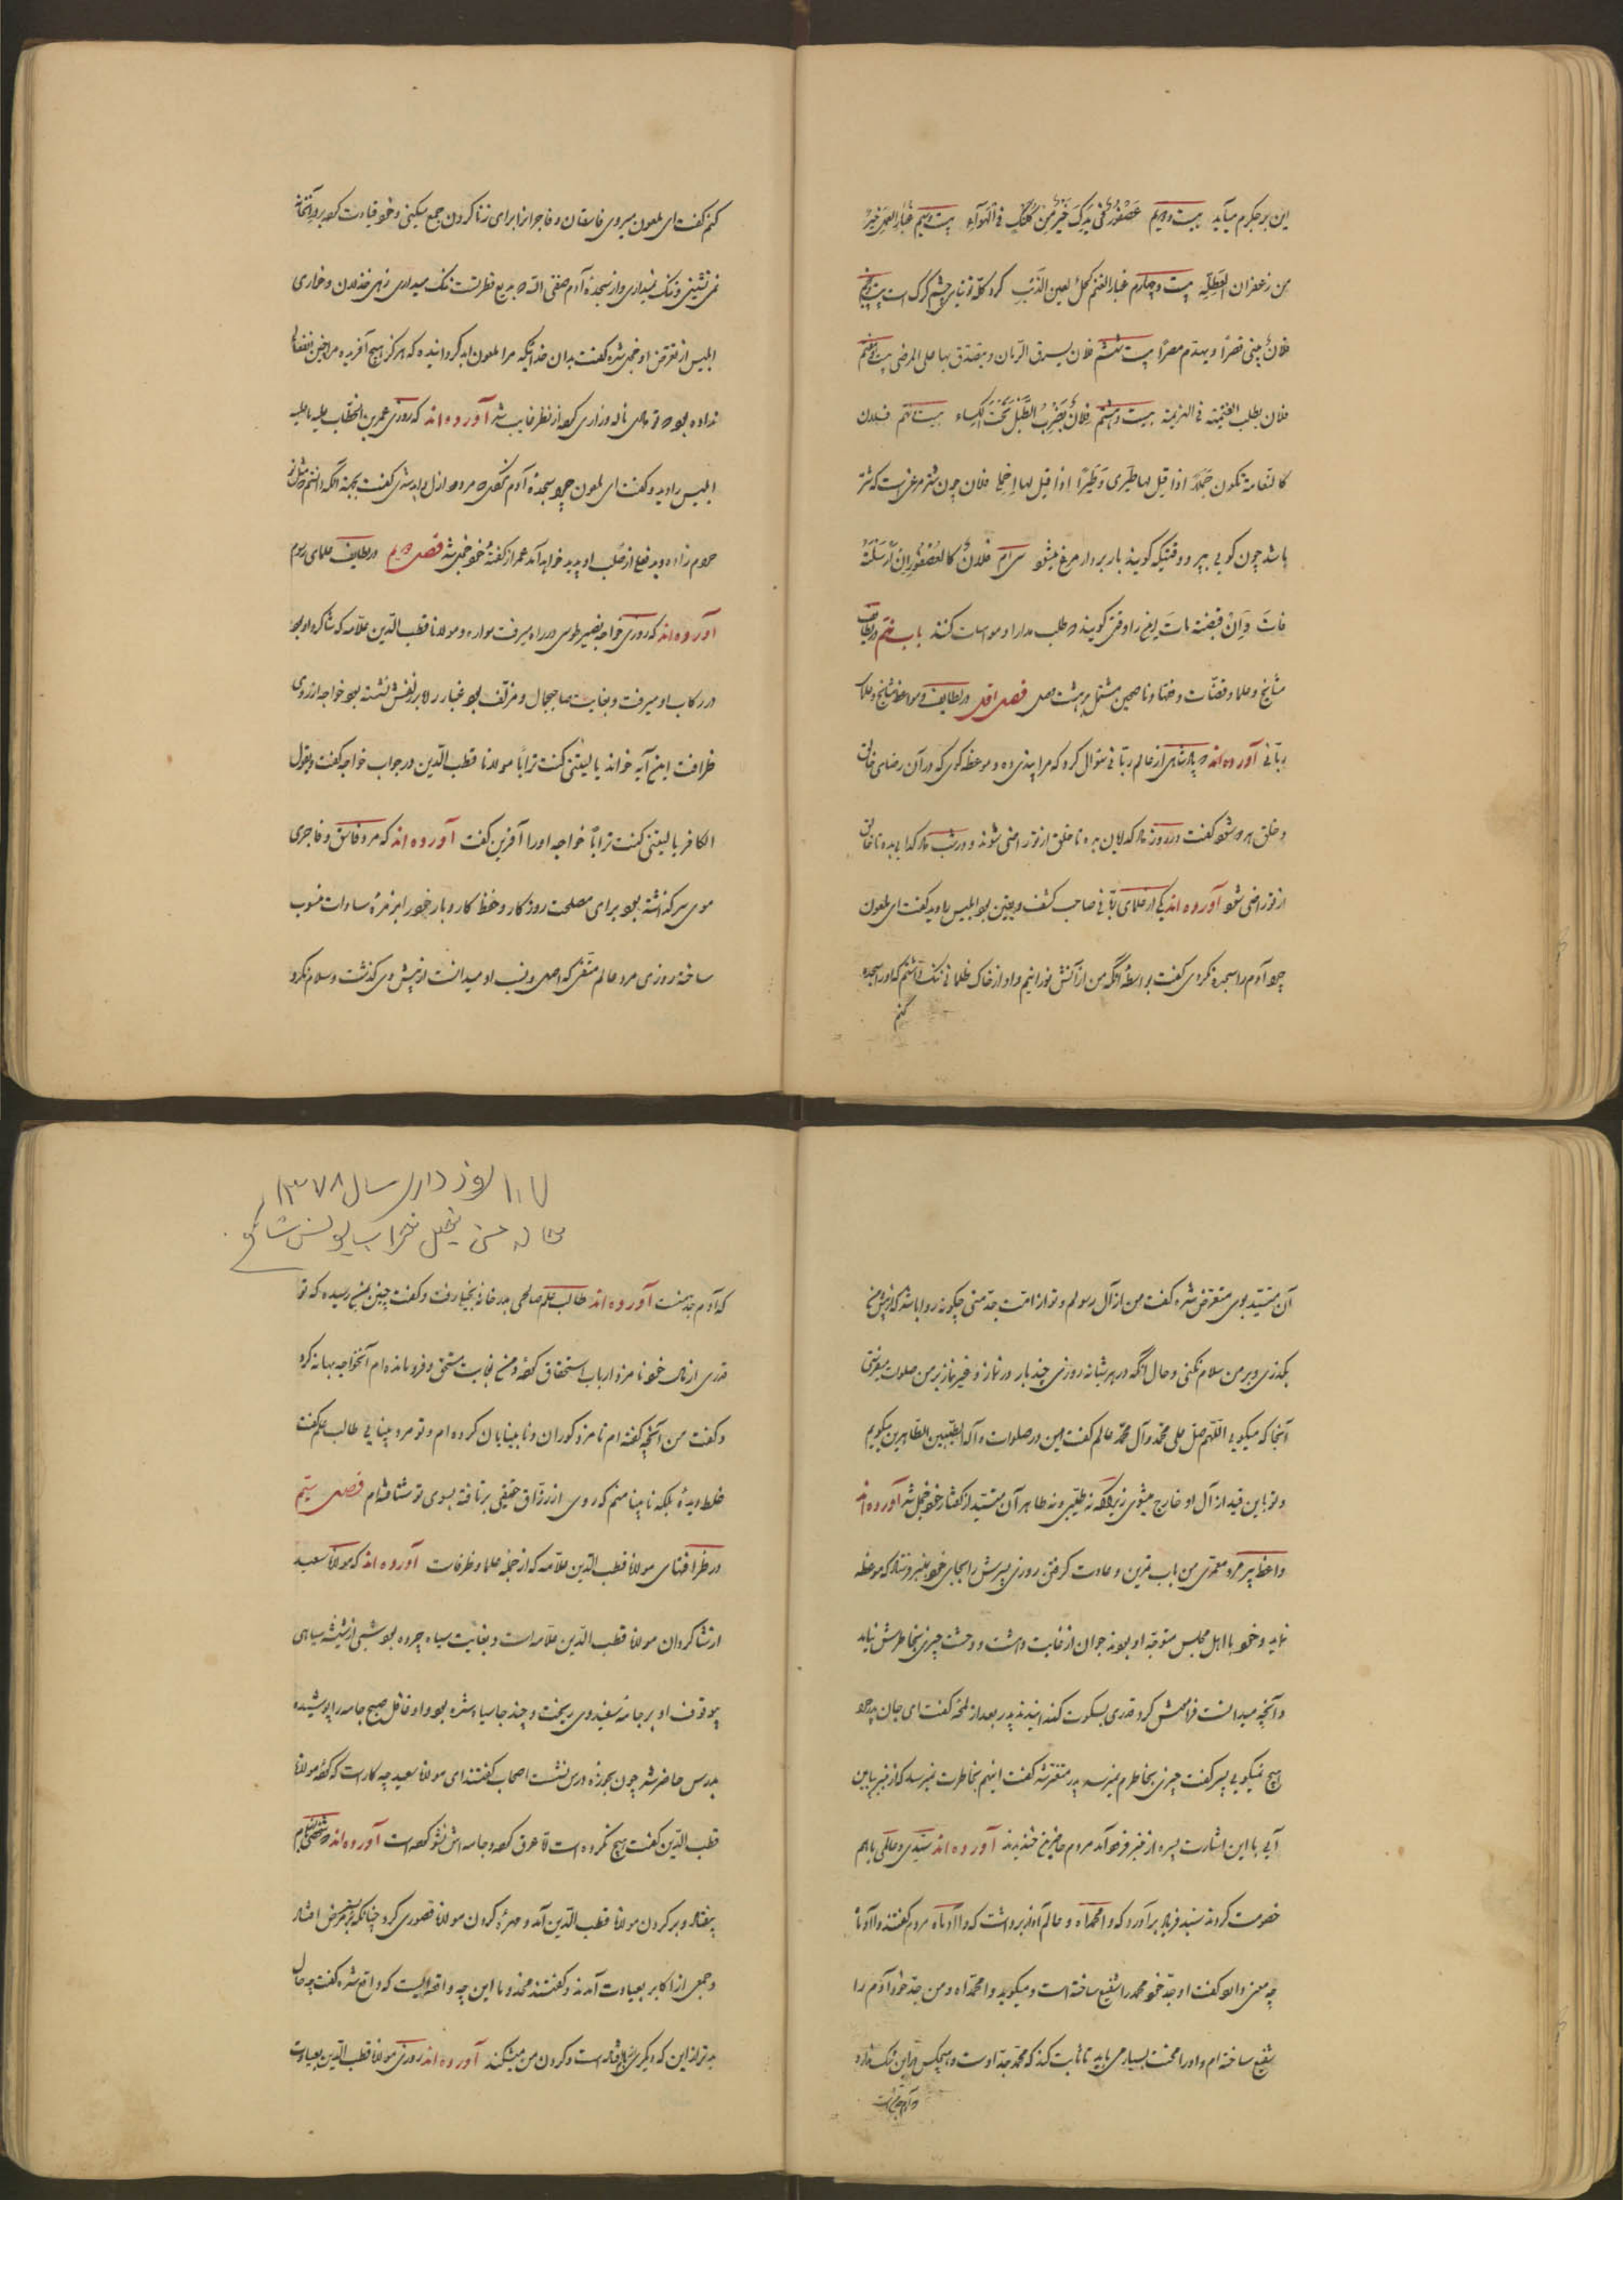 این بر جگرم میآید بیست و دویم عصفور فی یدک خیر من کلنگ فی الهوآء بیست سیم غبار العمل خیر
من زعفران العطلة بیست و چهارم غبار الغنم کحل لعین الذئب گرد گله توتیای چشم گرگ است
فلان یبنی قصرا و یهدم مصرا بیست ششم فلان یسرق الرمان و یتصدق بها علی المرضی
فلان یطلب الغنیمة فی الهزیمة بیست و هشتم فلان یضرب الطبل تحت الکساء بیست نهم فلان
کالنعامة تکون جملا اذا قیل لها طیری و طیرا اذا قیل لها فلان چون شتر مرغ است که شتر
باشد چون گویی بپر و وقتیکه گویند بار بردار مرغ میشود سی ام فلان کالعصفور ان ارسلته
فات و ان قبضته مات این را وقتی گویند که طلب مدارا و مواسات کنند باب هفتم
مشایخ و علما و قضات و فقها و ناصحین مشتمل بر هشت فصل فصل اول در لطایف و مواعظ مشایخ و علماء
ربانی آورده‌اند که پادشاهی از عالم ربانی سؤال کرد که مرا پندی ده و موعظه گوی که در آن رضای خالق
و خلق هر دو شود گفت در روز داد گدایان بده تا خلق از تو راضی شوند و در شب داد گدایی بده تا خالق
از تو راضی شود آورده‌اند یکی از علمای ربانی صاحب کشف و یقین بود ابلیس را دید گفت ای ملعون
چرا آدم را سجده نکردی گفت بواسطه آنکه من از آتش نورانیم و او از خاک ظلمانی ننگ داشتم که او را سجده
کنم
کنم گفت ای ملعون میروی فاسقان و فاجران را برای زنا کردن جمع میکنی و خود قیادت کرده بر در آنخانه
می نشینی و ننگ نمیداری و از سجده آدم صفی الله که بدیع فطرتست ننگ میداری زهی خذلان و خواری
ابلیس از تعرض او خجل شده گفت بدان خدائیکه مرا ملعون ابد گردانیده که هرگز هیچ آفریده مرا چنین انفعال
نداده بود که تو دادی ناله و زاری کرد از نظر غایب شد آورده‌اند که روزی عمر بن الخطاب علیه ما علیه
ابلیس را دید و گفت ای ملعون چرا سجده آدم نکردی که مردود ازل و ابد شدی گفت بجهة آنکه دانستم
حرام زاده و بد فعل از صلب او پدید خواهد آمد عمر از گفته خود خجل شد فصل دویم در لطایف علمای رسوم
آورده‌اند که روزی خواجه نصیر طوسی در راه میرفت سواره و مولانا قطب الدین علامه که شاگرد او بود
در رکاب او میرفت و بغایت صاحبجمال و مزلف بود غبار راه بر زلفش نشسته بود خواجه از روی
ظرافت این آیه خواند یا لیتنی کنت ترابا مولانا قطب الدین در جواب خواجه گفت و یقول
الکافر یا لیتنی کنت ترابا خواجه او را آفرین گفت آورده‌اند که مرد فاسق و فاجری
موی سر گذاشته بود برای مصلحت روزگار و حفظ کار و بار خود را بزمره سادات منسوب
ساخته روزی مرد عالم متقی که اصل و نسب او میدانست از پیش وی گذشت و سلام نکرد
آن متسید بوی متعرض شده گفت من از آل رسولم و تو از امت جد منی چگونه روا باشد که از پیش من
بگذری و بر من سلام نکنی و حال آنکه در هر شبانه روزی چند بار در نماز و غیر نماز بر من صلوات میفرستی
آنجا که میگویی اللهم صل علی محمد و آل محمد عالم گفت من در صلوات و آله الطیبین الطاهرین میگویم
و تو باین قید از آل او خارج میشوی زیرا که نه طیبی و نه طاهر آن متسید از گفتار خود خجل شد آورده‌اند
واعظ پیر مرد معمری من باب تمرین و عادت گرفتن روزی پسرش را بجای خود بمنبر فرستاد که موعظه
نماید و خود با اهل مجلس متوجه او بودند جوان از غایت دهشت و وحشت چیزی بخاطرش نیامد
و آنچه میدانست فراموش کرد قدری بسکوت گذرانیدند پدر بعد از لمحه گفت ای جان پدر چرا
هیچ نمیگویی پسر گفت چیزی بخاطرم نمیرسد پدر متغیر شد گفت اینهم بخاطرت نمیرسد که از منبر پایین
آیی با این اشارت پسر از منبر فرود آمد مردم حاضرین خندیدند آورده‌اند سیدی و عالمی با هم
خصومت کردند سید فریاد برآورد که وا محمداه و عالم آواز برداشت که وا آدماه مردم گفتند وا آدماه
چه معنی دارد گفت او جد خود محمد را شفیع ساخته است و میگوید وا محمداه و من جد خود آدم را
شفیع ساخته‌ام و او را محنت بسیار می باید تا ثابت کند که محمد جد اوست و هیچکس را در این شک ندارد
۱۰۷ روز دار سال ۱۳۷۸
که آدم جد منست آورده‌اند طالب علم صالحی بدر خانه بخیل رفت و گفت چنین بمن رسیده که تو
قدری از مال خود نامزد ارباب استحقاق کرده و من بغایت مستحق و فرو مانده‌ام آنخواجه بهانه کرد
و گفت من آنچه گفته‌ام نامزد کوران و نابینایان کرده‌ام و تو مرد بینایی طالب علم گفت
غلط دیده بلکه نابینا منم که روی از رزاق حقیقی برتافته بسوی تو شتافته‌ام فصل سیم
در ظرافتهای مولانا قطب الدین علامه که از جمله علما و ظرفاست آورده‌اند که مولانا سعید
از شاگردان مولانا قطب الدین علامه است و بغایت سیاه چرده بود شبی از شیشه سیاهی
بیوقوف او بر جامه سفید وی ریخت و چند جا سیاه شده بود و او غافل صبح جامه را پوشیده
بدرس حاضر شد چون بحوزه درس نشست اصحاب گفتند ای مولانا سعید چه کار است که کرده مولانا
قطب الدین گفت هیچ نکرده است عرق کرده و جامه اش نشو کرده است آورده‌اند
مولانا قطب الدین آمد و کردن مولانا قصوری کرد چنانکه
و جمعی از اکابر بعیادت آمدند و گفتند مخدوما این چه واقعه ایست که واقع شده گفت چه حال
بدتر از این که دیگری افتاده است و گردن من میشکند آورده‌اند روزی مولانا قطب الدین بعیادت